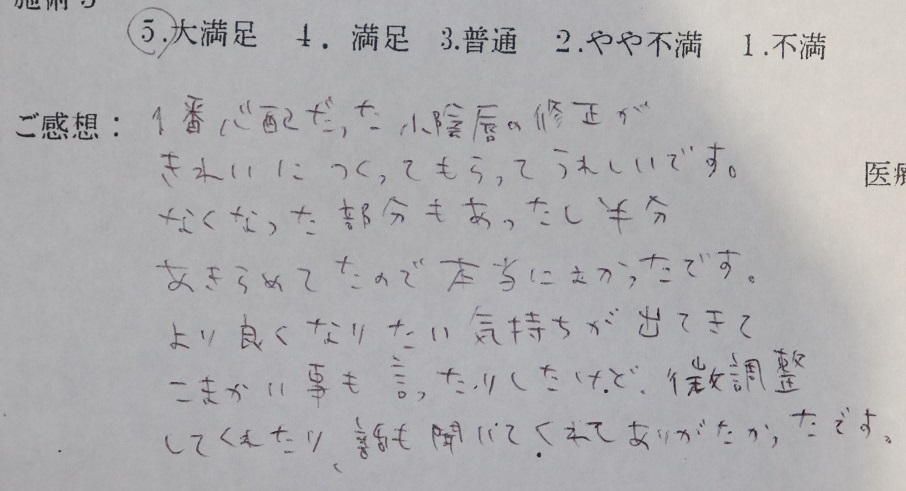 施術
5.大満足 4.満足 3.普通 2.やや不満 1.不満
ご感想: 1番心配だった小陰唇の修正が
きれいにつくってもらってうれしいです。
なくなった部分もあったし半分
あきらめてたので本当によかったです。
より良くなりたい気持ちが出てきて
こまかい事も言ったりしたけど、微調整
してくれたり、話も聞いてくれてありがたかったです。
医療